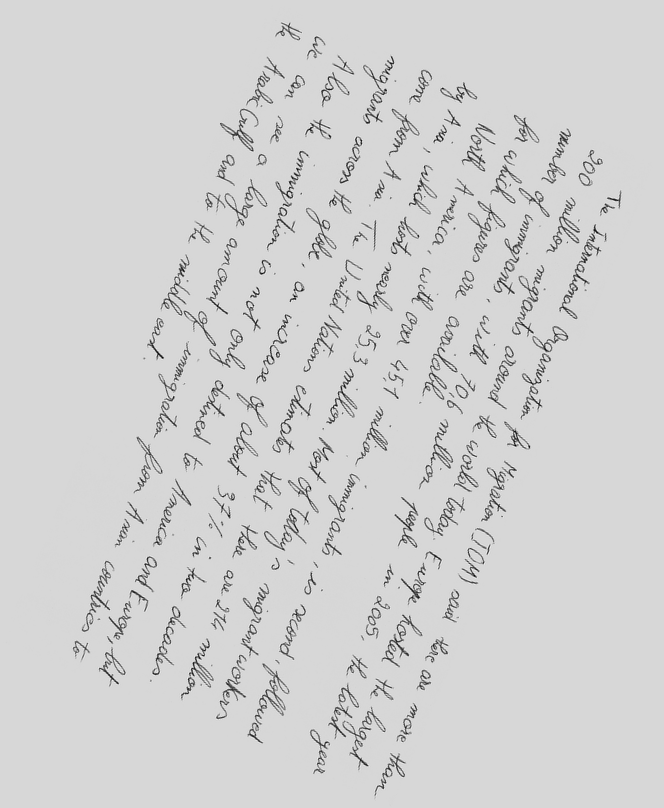 The International Organization for Migration (IOM) said there are more than
200 million migrants around the world today. Europe hosted the largest
number of immigrants, with 70,6 million people in 2005, the latest year
for which figures are available.
North America, with over 45,1 million immigrants, is second, followed
by Asia, which hosts nearly 25,3 million. Most of today's migrant workers
come from Asia. The United Nations estimates that there are 214 million
migrants across the globe, an increase of about 37% in two decades.
Also the immigration is not only destined to America and Europe, but
we can see a large amount of immigration from Asian countries to
the Arabic Gulf and to the middle east.